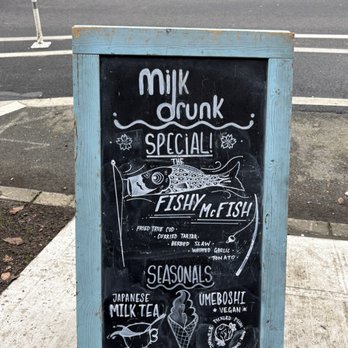 milk
drunk
SPECIAL!
THE
FISHY McFISH
FRIED TRUE COD ·
· CURRIED TARTAR ·
· HERBED SLAW ·
· WHIPPED GARLIC ·
TOMATO
SEASONALS
JAPANESE
MILK TEA
UMEBOSHI
• VEGAN •